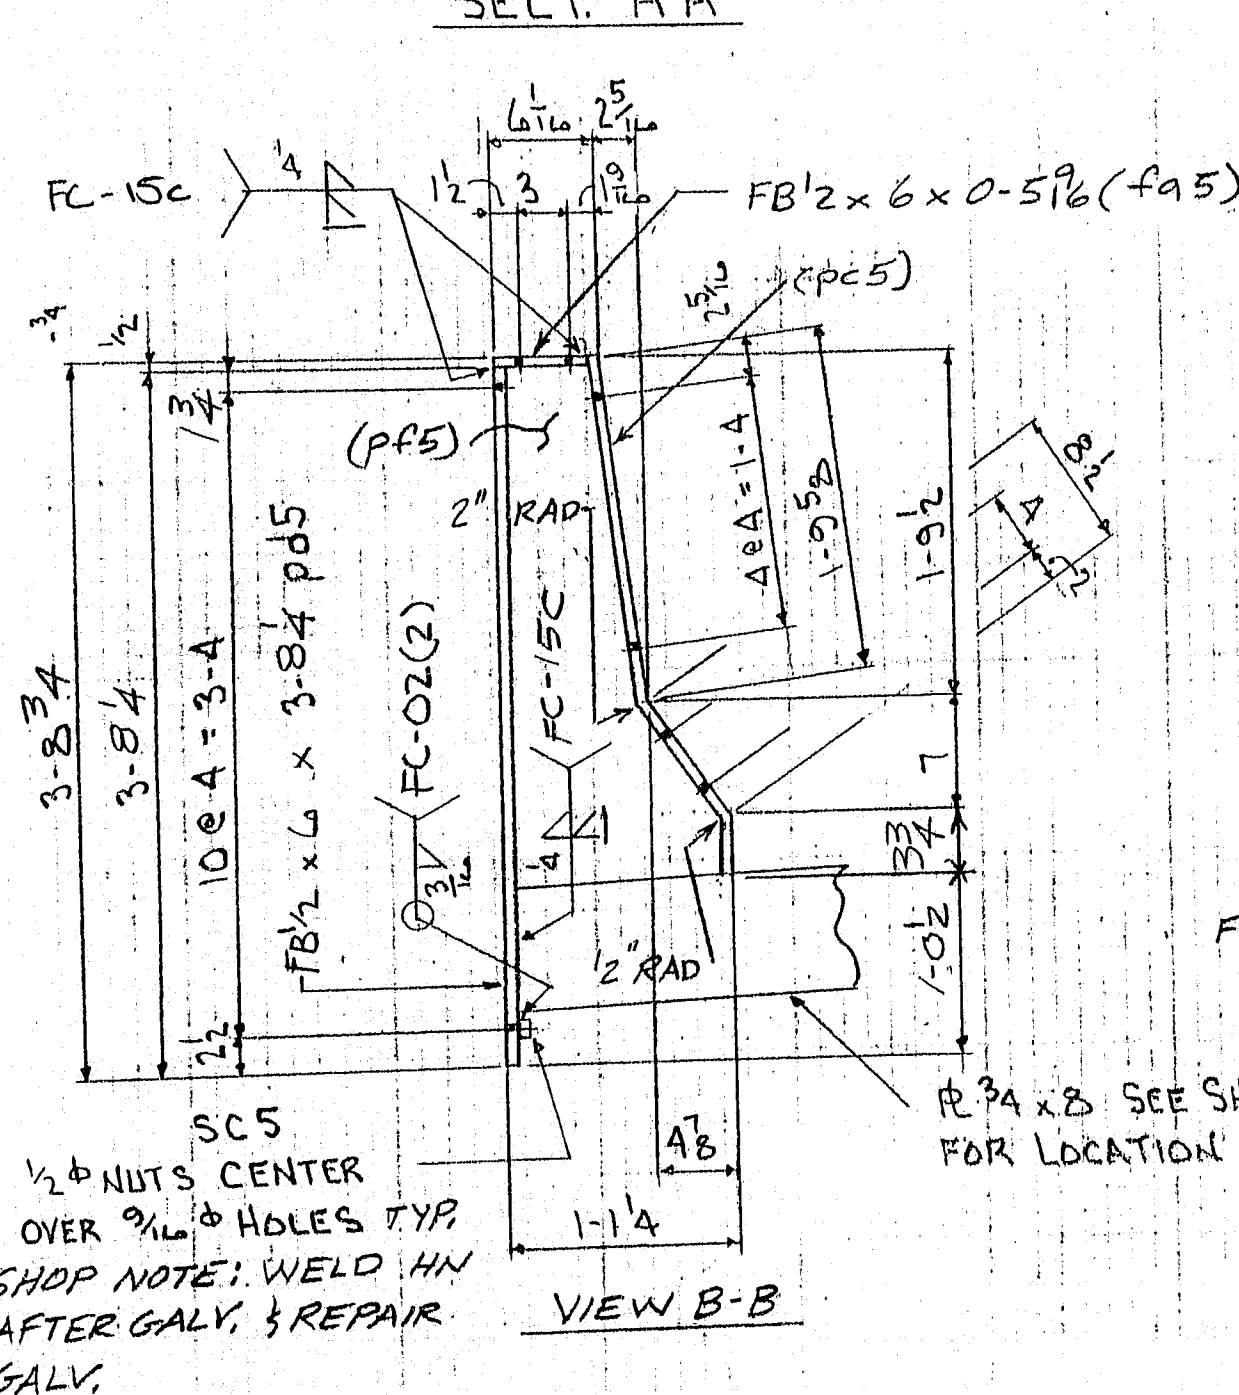 SECT. A A
6 1/16
2 5/16
FC-15c
1/4
1 1/2
3
1 9/16
FB 1/2 x 6 x 0-5 9/16 (fa5)
(pc5)
2 5/16
3/4
1/2
1 3/4
(pf5)
2" RAD
4@4=1-4
1-9 5/8
1-9 1/2
8 1/2
4
3-8 3/4
3-8 1/4
10@4=3-4
FB 1/2 x 6 x 3-8 1/4 pd5
FC-02(2)
FC-15C
3/16
1/4
7
3 3/4
1-0 1/2
1/2" RAD
2 1/2
SC5
1/2 ⌀ NUTS CENTER
OVER 9/16 ⌀ HOLES TYP.
SHOP NOTE: WELD HN
AFTER GALV. & REPAIR
GALV.
4 7/8
1-1 1/4
PL 3/4 x 8 SEE SH
FOR LOCATION
VIEW B-B
F